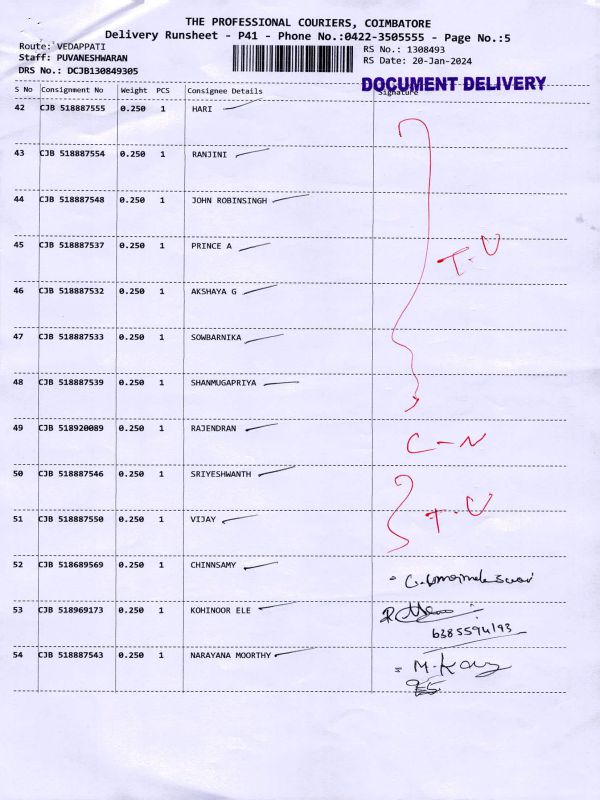 THE PROFESSIONAL COURIERS, COIMBATORE
Delivery Runsheet - P41 - Phone No.:0422-3505555 - Page No.:5
Route: VEDAPPATI
RS No.: 1308493
Staff: PUVANESHWARAN
RS Date: 20-Jan-2024
DRS No.: DCJB130849305
DOCUMENT DELIVERY
S No Consignment No Weight PCS Consignee Details Signature
42 CJB 518887555 0.250 1 HARI
43 CJB 518887554 0.250 1 RANJINI
44 CJB 518887548 0.250 1 JOHN ROBINSINGH
45 CJB 518887537 0.250 1 PRINCE A
T.U
46 CJB 518887532 0.250 1 AKSHAYA G
47 CJB 518887533 0.250 1 SOWBARNIKA
48 CJB 518887539 0.250 1 SHANMUGAPRIYA
49 CJB 518920089 0.250 1 RAJENDRAN C-N
50 CJB 518887546 0.250 1 SRIYESHWANTH
T.U
51 CJB 518887550 0.250 1 VIJAY
52 CJB 518689569 0.250 1 CHINNSAMY
53 CJB 518969173 0.250 1 KOHINOOR ELE
54 CJB 518887543 0.250 1 NARAYANA MOORTHY